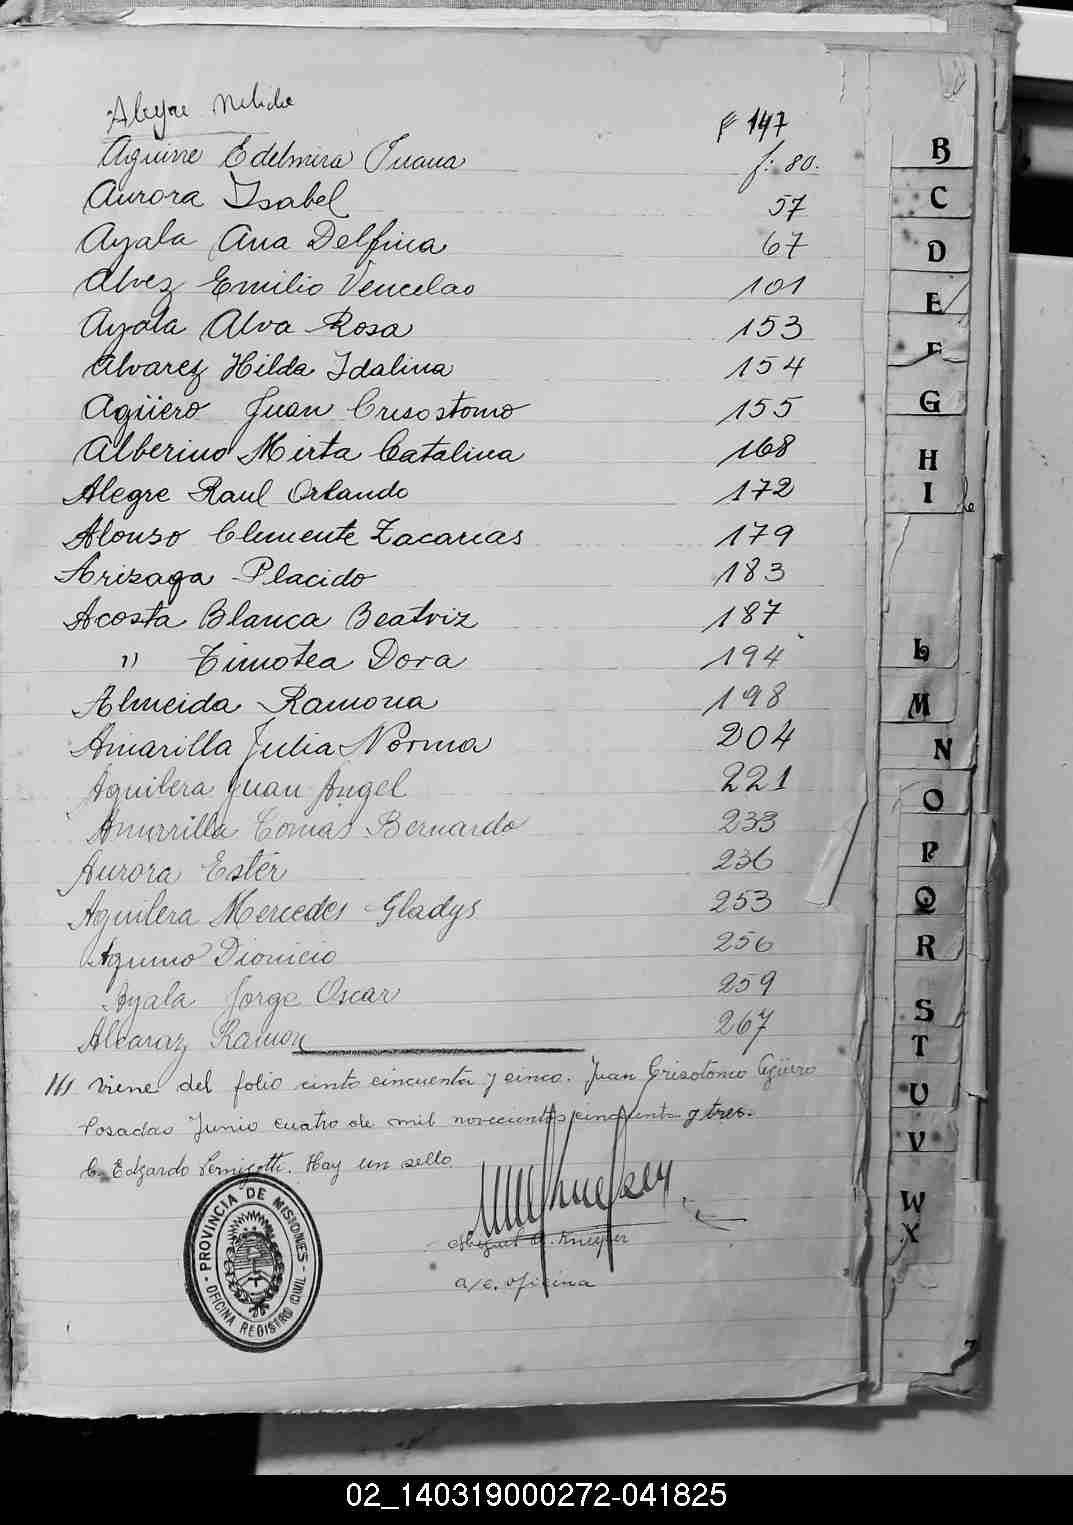 Alegre F 147
Aguirre Edelmira Juana f: 80.
Aurora Isabel 57
Ayala Ana Delfina 67
Alvez Emilio Vencelao 101
Ayala Alva Rosa 153
Alvarez Hilda Idalina 154
Agüero Juan Crisostomo 155
Alberino Mirta Catalina 168
Alegre Raul Orlando 172
Alonso Clemente Zacarias 179
Arizaga Placido 183
Acosta Blanca Beatriz 187
" Timotea Dora 194
Almeida Ramona 198
Amarilla Julia Norma 204
Aguilera Juan Angel 221
Amarrilla Tomás Bernardo 233
Aurora Estér 236
Aguilera Mercedes Gladys 253
Aquino Dionicio 256
Ayala Jorge Oscar 259
Alcaraz Ramon 267
/// viene del folio cinto cincuenta y cinco. Juan Grisotomo Agüero
Posadas Junio cuatro de mil novecientos cincuenta y tres.
C. Edgardo Hay un sello
Miguel
a/c. oficina
PROVINCIA DE MISIONES
OFICINA REGISTRO CIVIL
B
C
D
E
F
G
H
I
L
M
N
O
P
Q
R
S
T
U
V
W
X
02_140319000272-041825